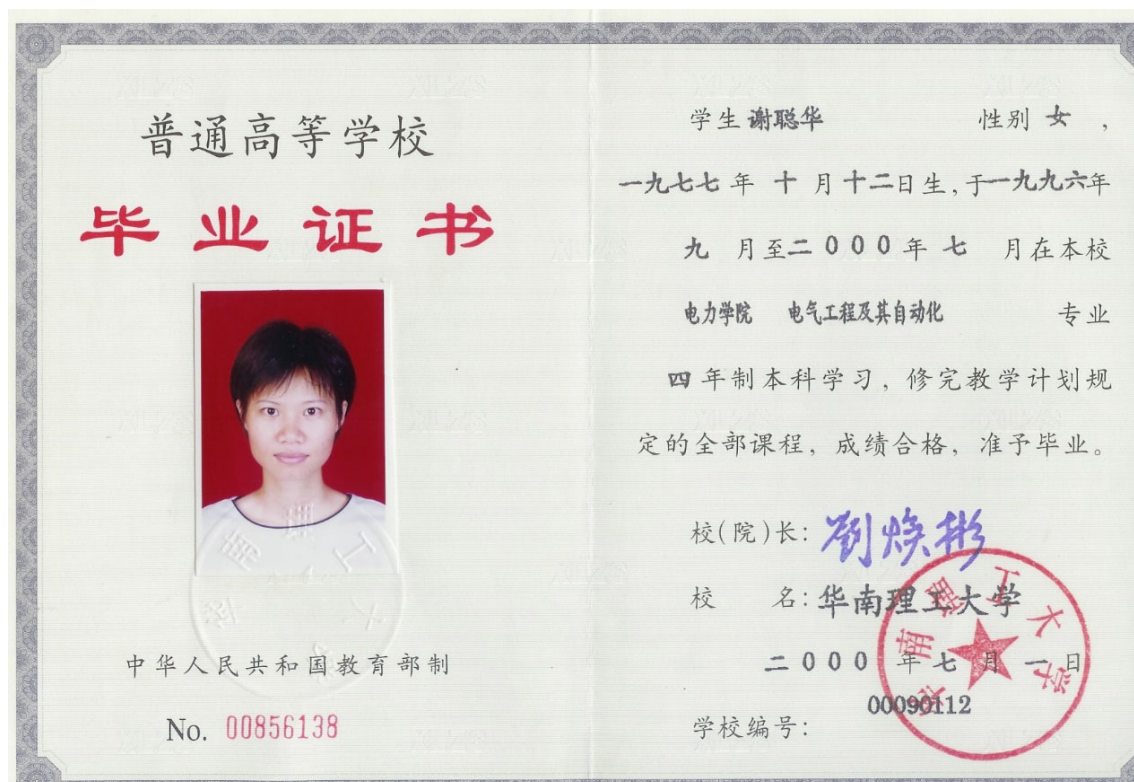 普通高等学校
毕业证书
中华人民共和国教育部制
No. 00856138
学生 谢聪华 性别 女 ,
一九七七 年 十 月 十二 日生, 于 一九九六 年
九 月至 二000 年 七 月在本校
电力学院 电气工程及其自动化 专业
四 年制本科学习, 修完教学计划规
定的全部课程, 成绩合格, 准予毕业。
校(院)长: 刘焕彬
校 名: 华南理工大学
二000 年 七 月 一 日
00090112
学校编号:
华南理工大学
华南理工大学